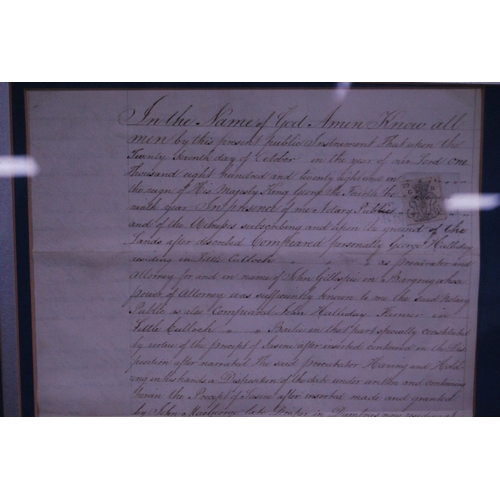 In the Name of God Amen Know all
men by this present public Instrument That upon the
Twenty Seventh day of October in the year of our Lord one
thousand eight hundred and twenty eight and in
the reign of His Majesty King George the Fourth the
ninth year In presence of me Notary Public
and of the Witnesses subscribing and upon the ground of the
Lands after described Compeared personally George Halliday
residing in Culloch as procurator and
Attorney for and in name of John Gillespie in Bargrey whose
power of Attorney was sufficiently known to me the said Notary
Public as also Compeared John Halliday Farmer in
Little Culloch Bailie in that part specially constituted
by virtue of the precept of Sasine after inserted contained in the Dis
position after narrated The said procurator Having and Hold
ing in his hands a Disposition of the date under written and containing
therein the Precept of Sasine after inserted made and granted
by John late in now